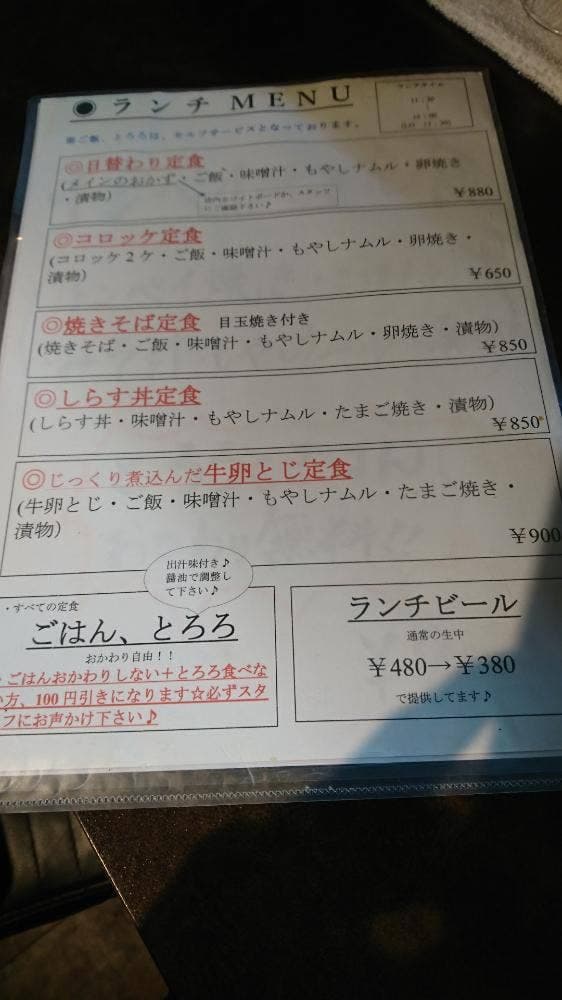 ●ランチMENU
ランチタイム
11:30
※ご飯、とろろは、セルフサービスとなっております。
◎日替わり定食
(メインのおかず・ご飯・味噌汁・もやしナムル・卵焼き
・漬物)
店内ホワイトボードか、スタッフ
にご確認下さい♪
￥880
◎コロッケ定食
(コロッケ2ケ・ご飯・味噌汁・もやしナムル・卵焼き・
漬物)
￥650
◎焼きそば定食 目玉焼き付き
(焼きそば・ご飯・味噌汁・もやしナムル・卵焼き・漬物)
￥850
◎しらす丼定食
(しらす丼・味噌汁・もやしナムル・たまご焼き・漬物)
￥850
◎じっくり煮込んだ牛卵とじ定食
(牛卵とじ・ご飯・味噌汁・もやしナムル・たまご焼き・
漬物)
￥900
出汁味付き♪
醤油で調整し
て下さい♪
・すべての定食
ごはん、とろろ
おかわり自由！！
・ごはんおかわりしない＋とろろ食べな
い方、100円引きになります☆必ずスタ
ッフにお声かけ下さい♪
ランチビール
通常の生中
￥480→￥380
で提供してます♪